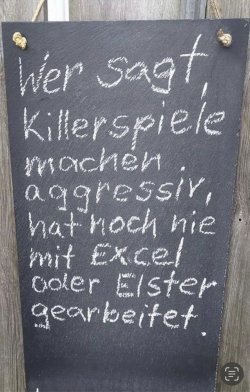 Wer sagt,
Killerspiele
machen
aggressiv,
hat noch nie
mit Excel
oder Elster
gearbeitet.